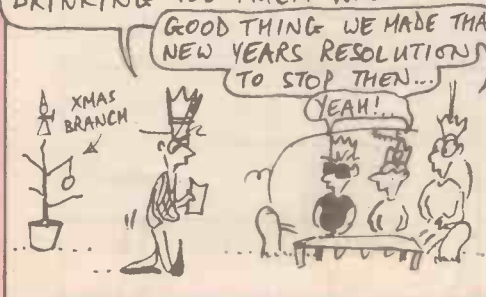 DRINKING TOO MUCH
GOOD THING WE MADE
NEW YEARS RESOLUTION
TO STOP THEN...
YEAH!..
XMAS
BRANCH